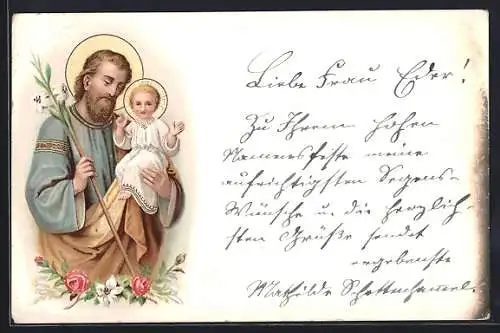 Liebe Frau Eder!
Zu Ihrem hohen
Namensfeste meine
aufrichtigsten Segens-
Wünsche u. die herzlich-
sten Grüße sendet
ergebenste
Mathilde Schottenhamel.